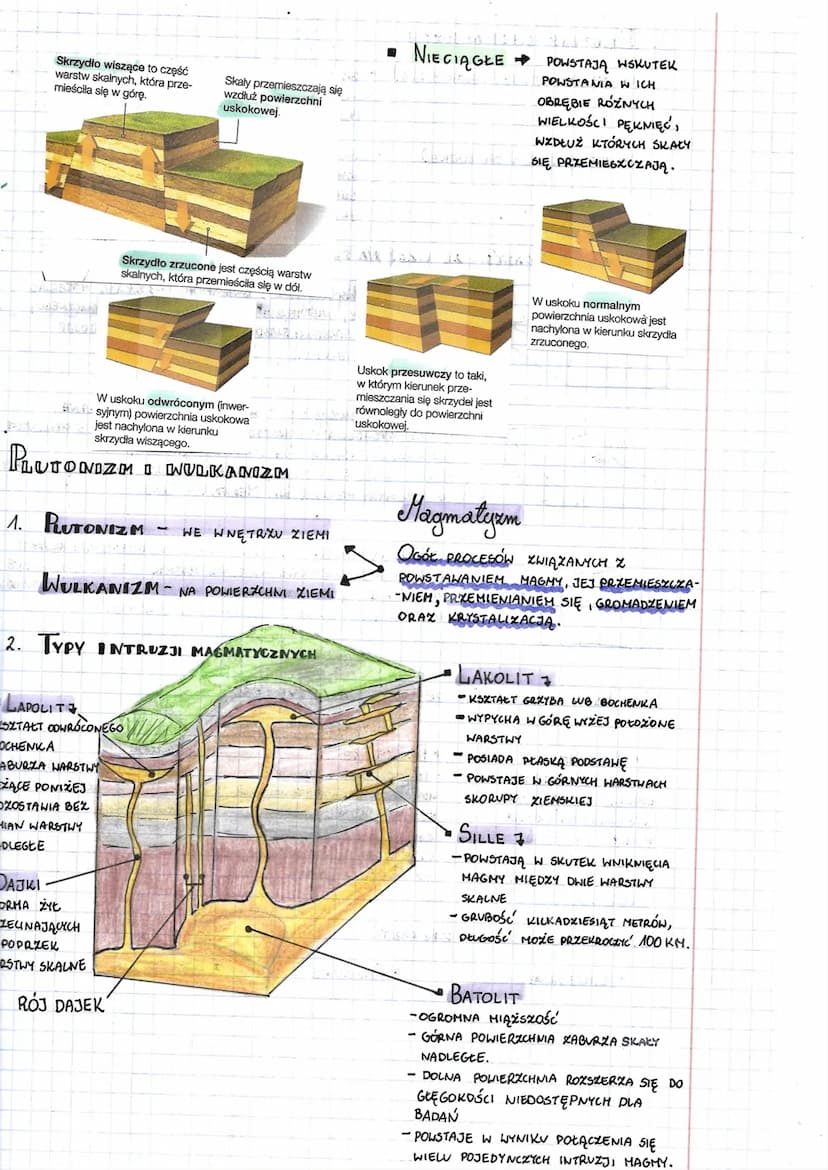 Skrzydło wiszące to część
warstw skalnych, która prze-
mieściła się w górę.
Skały przemieszczają się
wzdłuż powierzchni
uskokowej.
Skrzydło zrzucone jest częścią warstw
skalnych, która przemieściła się w dół.
▪ NIECIĄGŁE → POWSTAJĄ WSKUTEK
POWSTANIA W ICH
OBRĘBIE RÓŻNYCH
WIELKOŚCI PĘKNIĘĆ,
WZDŁUŻ KTÓRYCH SKAŁY
SIĘ PRZEMIESZCZAJĄ.
W uskoku odwróconym (inwer-
syjnym) powierzchnia uskokowa
jest nachylona w kierunku
skrzydła wiszącego.
Uskok przesuwczy to taki,
w którym kierunek prze-
mieszczania się skrzydeł jest
równoległy do powierzchni
uskokowej.
W uskoku normalnym
powierzchnia uskokowa jest
nachylona w kierunku skrzydła
zrzuconego.
PLUTONIZM I WULKANIZM
1. PLUTONIZM – WE WNĘTRZU ZIEMI
WULKANIZM – NA POWIERZCHNI ZIEMI
Magmatyzm
OGÓŁ PROCESÓW ZWIĄZANYCH Z
POWSTAWANIEM MAGMY, JEJ PRZEMIESZCZA-
-NIEM, PRZEMIENIANIEM SIĘ, GROMADZENIEM
ORAZ KRYSTALIZACJĄ.
2. TYPY INTRUZJI MAGMATYCZNYCH
LAPOLIT
SZTAŁT ODWRÓCONEGO
OCHENKA
ABURZA WARSTWY
ŻĄCE PONIŻEJ
OZOSTAWIA BEZ
MIAN WARSTWY
DLEGŁE
DAJKI
ORMA ŻYŁ
ZECINAJĄCYCH
POPRZEK
RSTWY SKALNE
RÓJ DAJEK
LAKOLIT
- KSZTAŁT GRZYBA LUB BOCHENKA
- WYPYCHA W GÓRĘ WYŻEJ POŁOŻONE
WARSTWY
- POSIADA PŁASKĄ PODSTAWĘ
- POWSTAJE W GÓRNYCH WARSTWACH
SKORUPY ZIEMSKIEJ
SILLE
- POWSTAJĄ W SKUTEK WNIKNIĘCIA
MAGMY MIĘDZY DWIE WARSTWY
SKALNE
- GRUBOŚĆ KILKADZIESIĄT METRÓW,
DŁUGOŚĆ MOŻE PRZEKROCZYĆ 100 KM.
BATOLIT
- OGROMNA MIĄŻSZOŚĆ
- GÓRNA POWIERZCHNIA ZABURZA SKAŁY
NADLEGŁE.
- DOLNA POWIERZCHNIA ROZSZERZA SIĘ DO
GŁĘGOKOŚCI NIEDOSTĘPNYCH DLA
BADAŃ
- POWSTAJE W WYNIKU POŁĄCZENIA SIĘ
WIELU POJEDYNCZYCH INTRUZJI MAGMY.